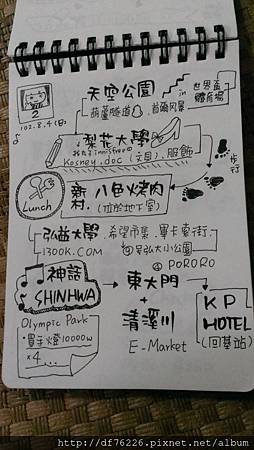 天空公園
in
世界盃
體育場
葫蘆隧道、首爾風景
2
102.8.4(日)
梨花大學
innisfree
Kosney.doc(文具)、服飾
步行
Lunch
新村.
八色烤肉
(位於地下室)
弘益大學
.希望市集、畢卡索街
1300K.COM
@弘大小公園
④ PORORO
神話
SHINHWA
東大門
+
清溪川
E-Market
KP
HOTEL
(回基站)
Olympic Park
・買手燈10000w
×4...
http://df76226.pixnet.net/album